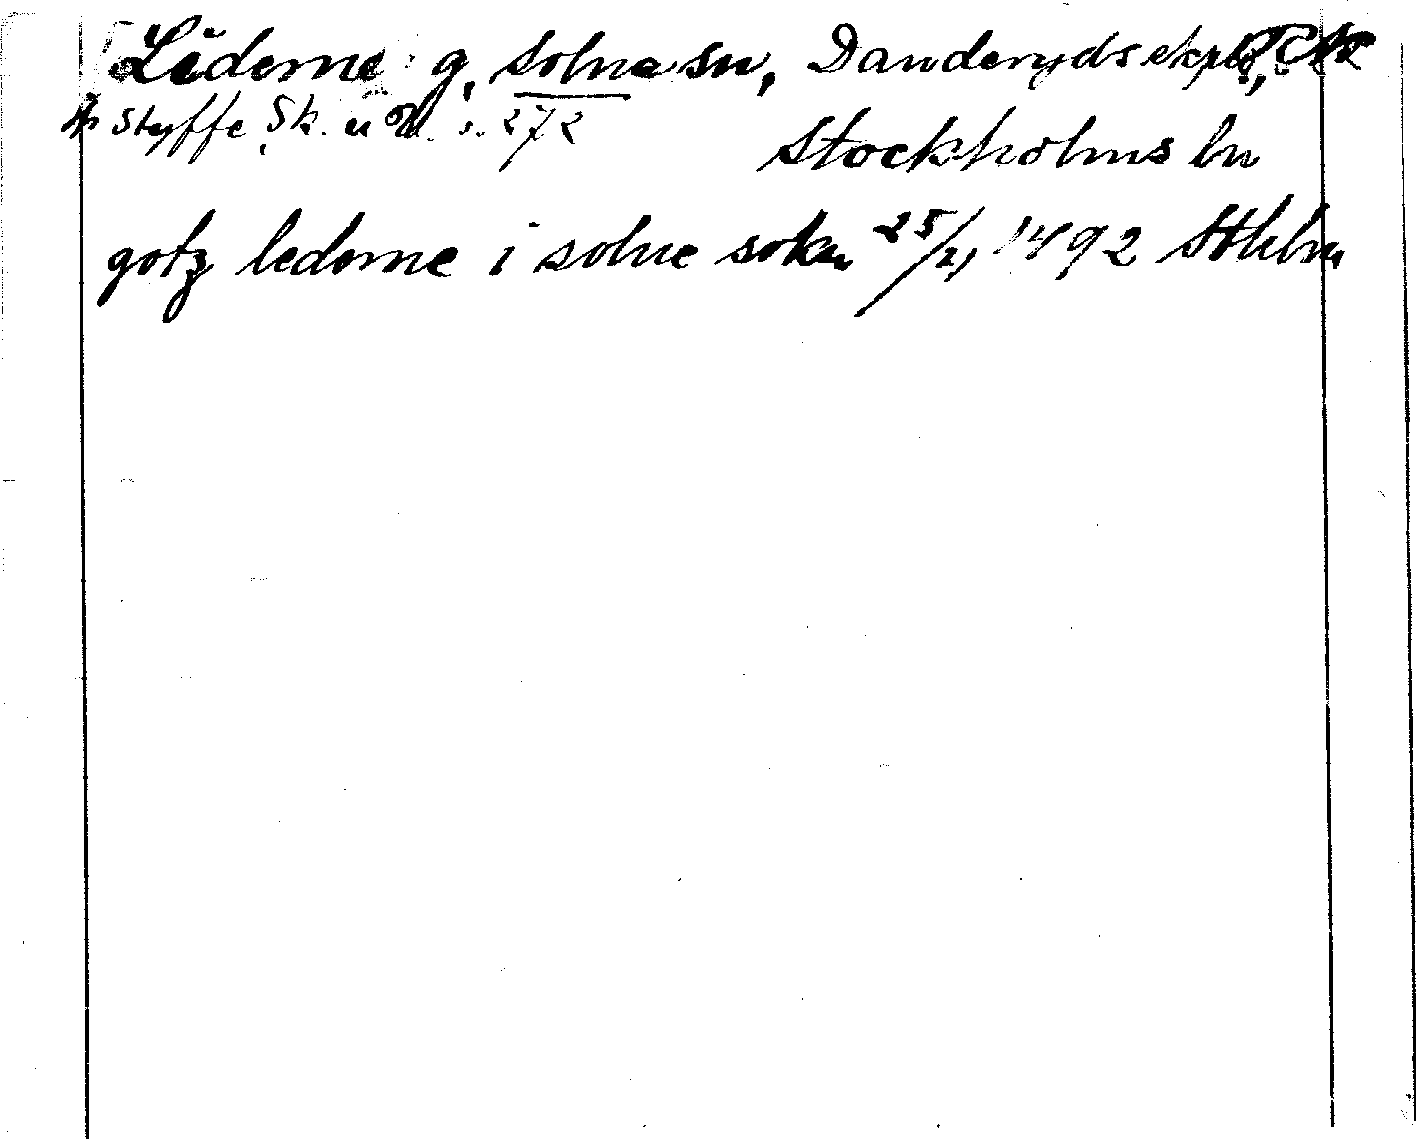 Lederne g, Solna sn, Danderyds skpl,
Styffe, Sk. u U. s. 272
Stockholms ln
gotz lederne i solne sokn 25/2, 1492 Sthlm